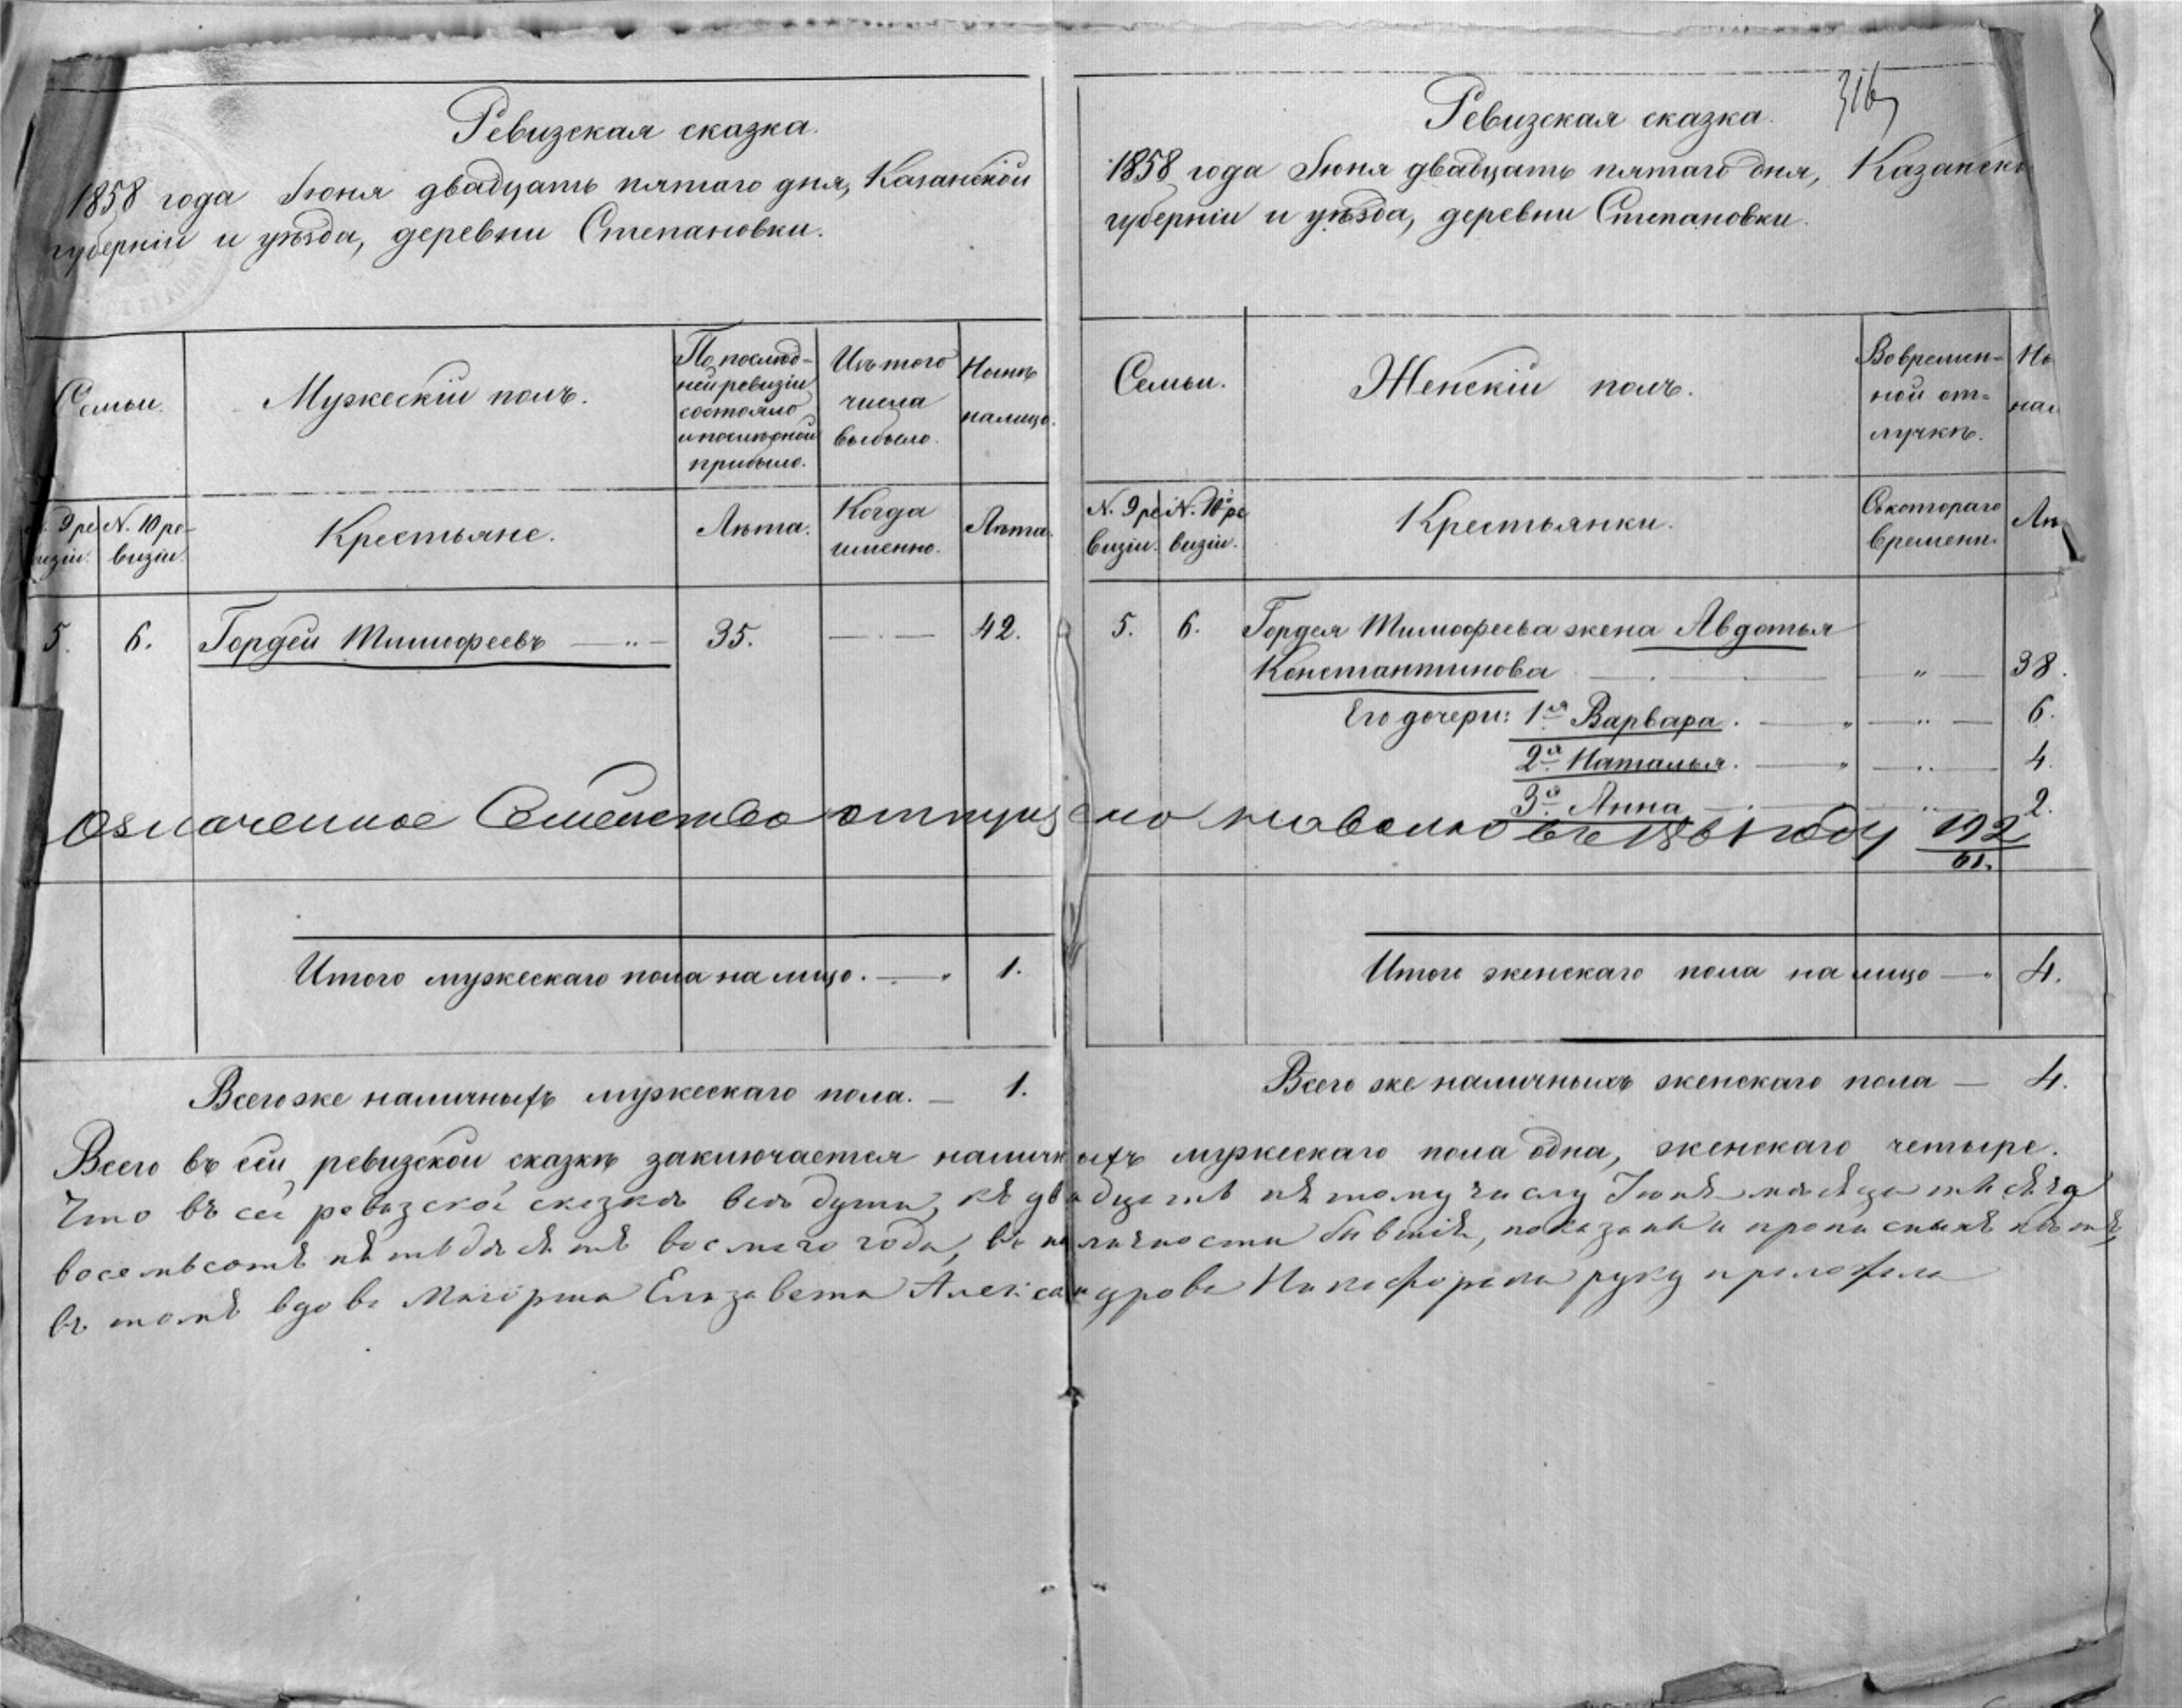 Ревизская сказка.
1858 года Іюня двадцать пятаго дня, Казанской
губерніи и уѣзда, деревни Степановки.
Семьи.
Мужескій полъ.
По послѣд-
ней ревизіи
состояло
и послѣ оной
прибыло.
Изъ того
числа
выбыло.
Нынѣ
налицо.
№. 9 ре
визіи.
№. 10 ре-
визіи.
Крестьяне.
Лѣта.
Когда
именно.
Лѣта.
5. 6. Гордей Тимофеевъ 35. 42.
Итого мужескаго пола на лицо. 1.
Всего же наличныхъ мужескаго пола. 1.
Ревизская сказка.
316
1858 года Іюня двадцать пятаго дня, Казанско
губерніи и уѣзда, деревни Степановки.
Семьи.
Женскій полъ.
Во времен-
ной от-
лучкѣ.
Ны
нал
№. 9 ре
визіи.
№. 10 ре
визіи.
Крестьянки.
Съ котораго
времени.
Лѣ
5. 6. Гордея Тимофеева жена Авдотья
Константинова " 38.
Его дочери: 1я Варвара. 6.
2я Наталья. 4.
3я Анна 2.
Означенное Семейство отпущено на волю въ 1861 году 192/61.
Итого женскаго пола на лицо 4.
Всего же наличныхъ женскаго пола — 4.
Всего въ сей ревизской сказкѣ заключается наличныхъ мужескаго пола одна, женскаго четыре.
Что въ сей ревизской сказкѣ всѣ души, къ двадцать пятому числу Іюня мѣсяца тысяча
восемьсотъ пятьдесятъ восьмого года, въ наличности бывшія, показаны и прописныхъ нѣтъ,
въ томъ вдова Маіорша Елизавета Александрова Никифорова руку приложила